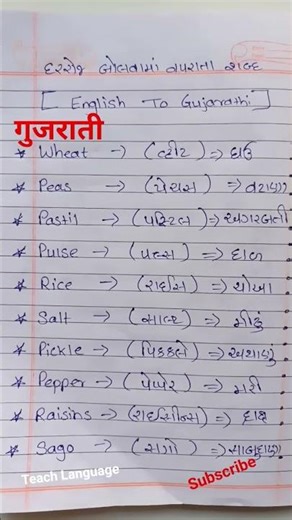 દરરોજ બોલવામાં વપરાતા શબ્દ
[ English To Gujarathi ]
गुजराती
* Wheat → (વ્હીટ) ⇒ ઘઉં
* Peas → (પેયસ) ⇒ વટાણા
* Pastil → (પસ્ટિલ) ⇒ અગરબતી
* Pulse → (પલ્સ) ⇒ દાળ
* Rice → (રાઈસ) ⇒ ચોખા
* Salt → (સાલ્ટ) ⇒ મીઠું
* Pickle → (પિકકલે) ⇒ અથાણું
* Pepper → (પેપેર) ⇒ મરી
* Raisins → (રાઇસીન્સ) ⇒ દ્રાક્ષ
* Sago → (સગો) ⇒ સાબુદાણા
Teach Language
Subscribe